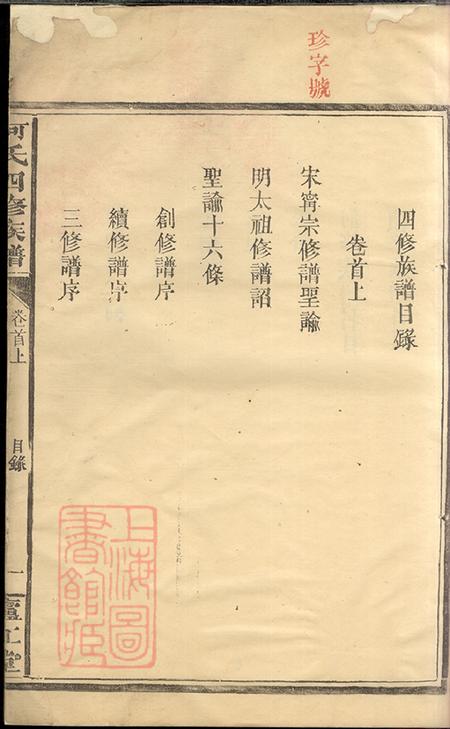 珍字號
四修族譜目錄
卷首上
宋甯宗修譜聖諭
明太祖修譜詔
聖諭十六條
創修譜序
續修譜序
三修譜序
何氏四修族譜
卷首上
目錄
一
廬江堂
上海圖書館藏